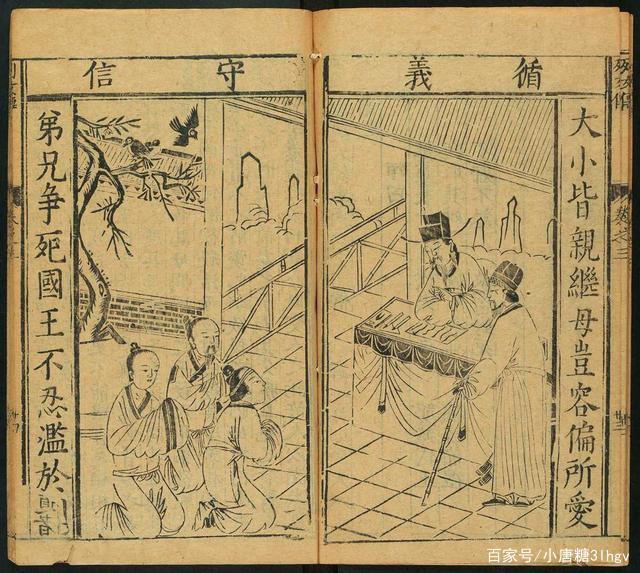 循義
守信
大小皆親繼母豈容偏所愛
弟兄争死國王不忍濫於
卷之三
百家号/小唐糖3lhgv